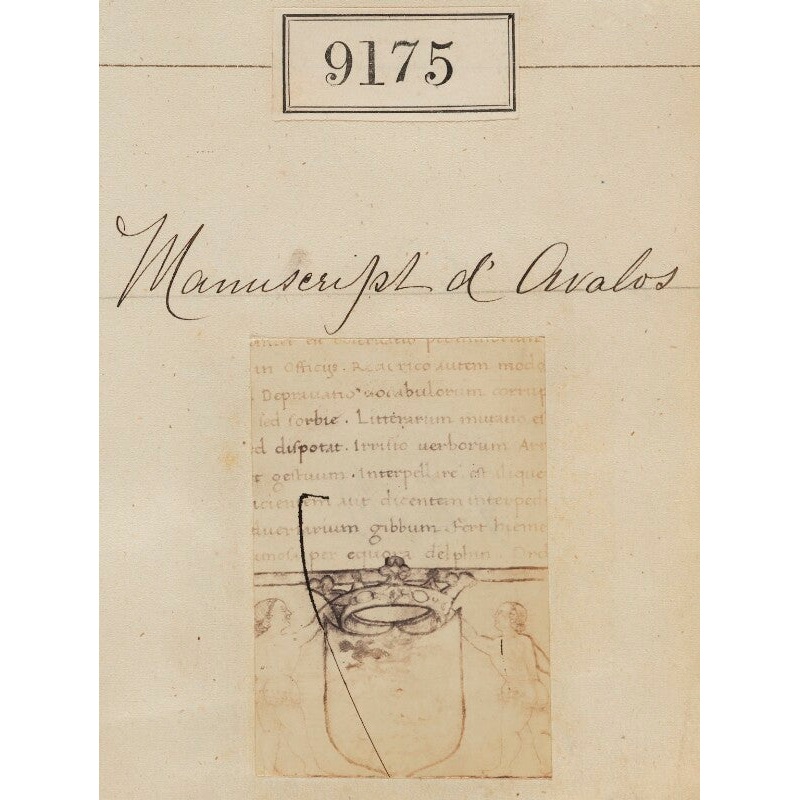 9175
Manuscript d' Avalos
in Officijs. autem modo
Depravatio vocabulorum corrup
sed sorbie. Litterarum mutatio et
d disputat. Irrisio verborum
t gestuum. Interpellare est alique
aut dicentem interpedi
gibbum. Fert hieme
per equora delphin. Ord